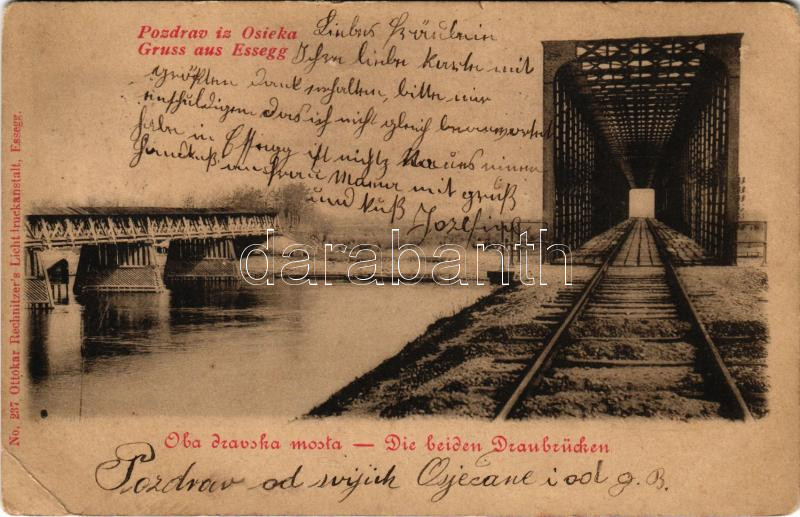 Pozdrav iz Osieka
Gruss aus Essegg
Liebes Fräulein
Ihre liebe Karte mit
größten Dank erhalten, bitte mir
entschuldigen das ich nicht gleich beantwortet
habe in Essegg ist nichtz Naues einen
Handkuß an Frau Mama mit gruß
und Kuß Jozefine
darabanth.com
No. 237 Ottokar Rechnitzer's Lichtdruckanstalt, Essegg.
Oba dravska mosta — Die beiden Draubrücken
Pozdrav od svijich Osječane i od g. B.